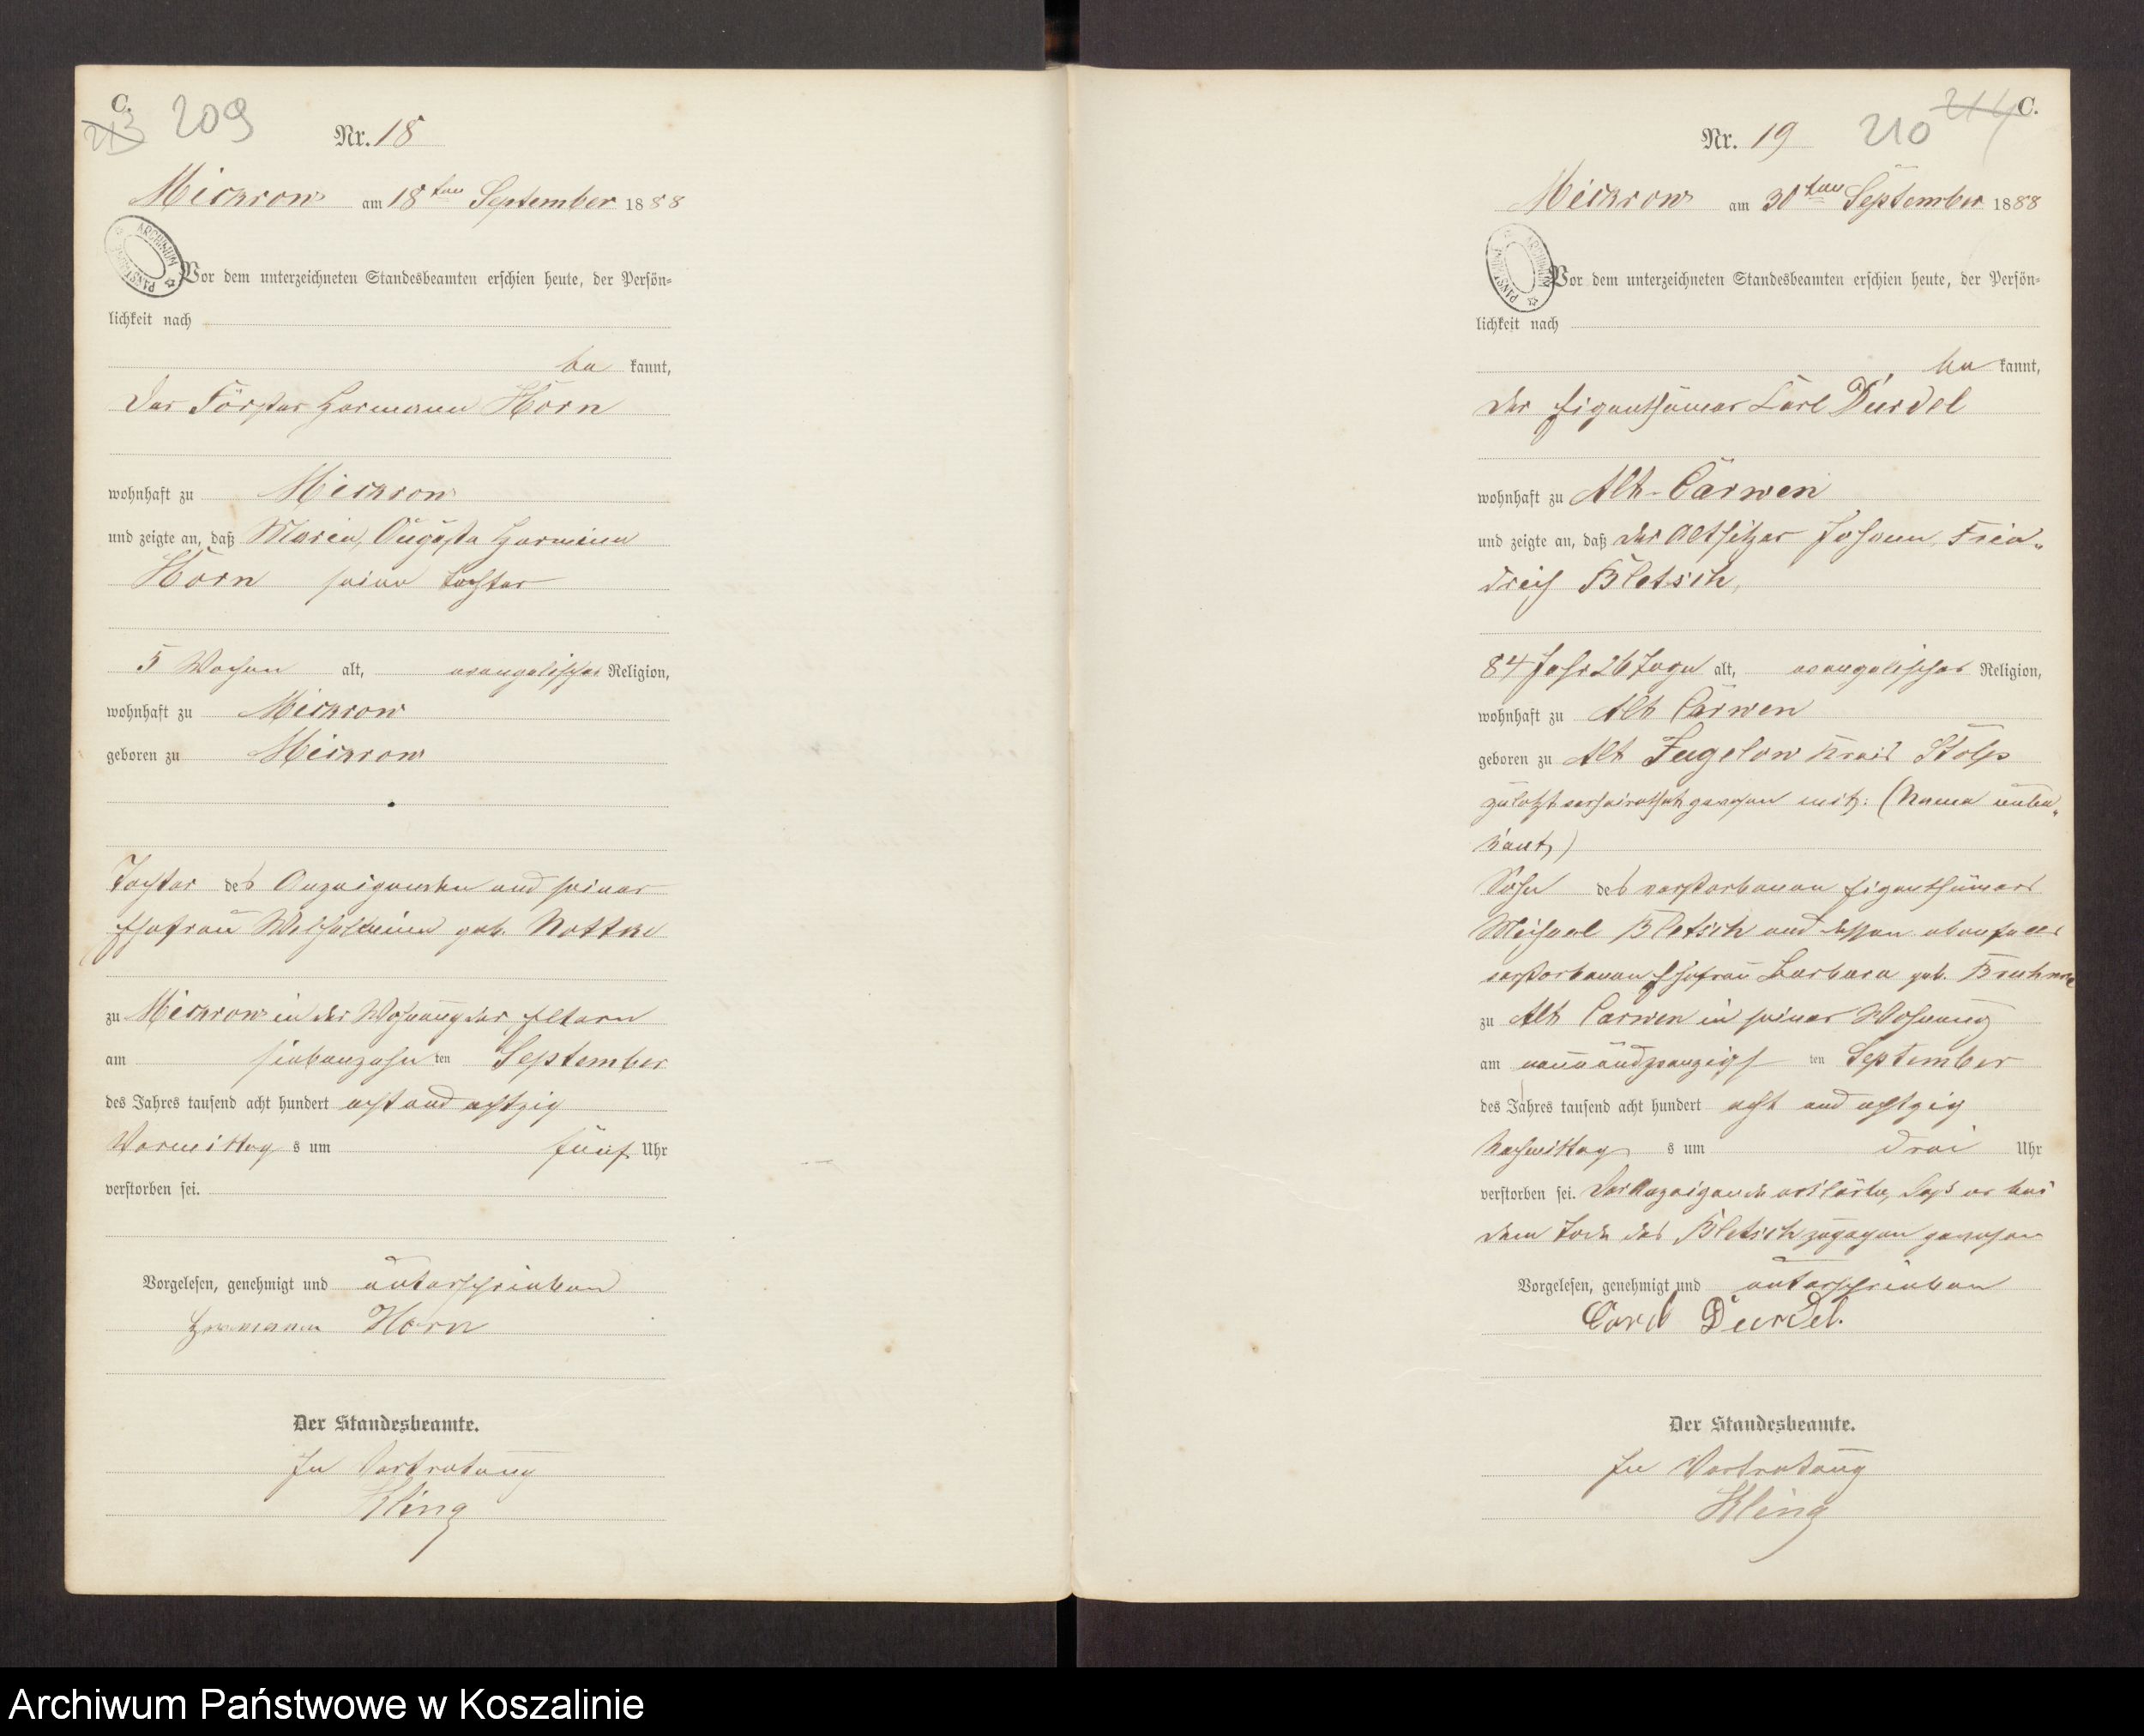 C.
213 209
Nr. 18
Mickrow am 18ten September 1888
ARCHIWUM PAŃSTWOWE
Vor dem unterzeichneten Standesbeamten erschien heute, der Persön=
lichkeit nach
be kannt,
der Förster Hermann Horn
wohnhaft zu Mickrow
und zeigte an, daß Marie, Auguste Hermine
Horn seine Tochter
5 Wochen alt, evangelischer Religion,
wohnhaft zu Mickrow
geboren zu Mickrow
Tochter des Anzeigenden und seiner
Ehefrau Wilhelmine geb. Nottke
zu Mickrow in der Wohnung der Eltern
am siebenzehn ten September
des Jahres tausend acht hundert acht und achtzig
Vormittag s um fünf Uhr
verstorben sei.
Vorgelesen, genehmigt und unterschrieben
Hermann Horn
Der Standesbeamte.
In Vertretung
Kling
214 C.
Nr. 19 210
Mickrow am 30ten September 1888
ARCHIWUM PAŃSTWOWE
Vor dem unterzeichneten Standesbeamten erschien heute, der Persön=
lichkeit nach
be kannt,
der Eigenthümer Carl Durdel
wohnhaft zu Alt-Carwen
und zeigte an, daß der Altsitzer Johann, Frie„
drich Bletsch,
84 Jahr 26 Tage alt, evangelischer Religion,
wohnhaft zu Alt Carwen
geboren zu Alt Jugelow Kreis Stolp
zuletzt verheirathet gewesen mit: (Name unbe„
kant,)
Sohn des verstorbenen Eigenthümers
Michael Bletsch und dessen ebenfalls
verstorbenen Ehefrau Barbara geb.
zu Alt Carwen in seiner Wohnung
am neunundzwanzigst ten September
des Jahres tausend acht hundert acht und achtzig
Nachmittag s um drei Uhr
verstorben sei. Der Anzeigende erklärte, daß er bei
dem Tode des Bletsch zugegen gewesen
Vorgelesen, genehmigt und unterschrieben
Carl Durdel.
Der Standesbeamte.
In Vertretung
Kling
Archiwum Państwowe w Koszalinie